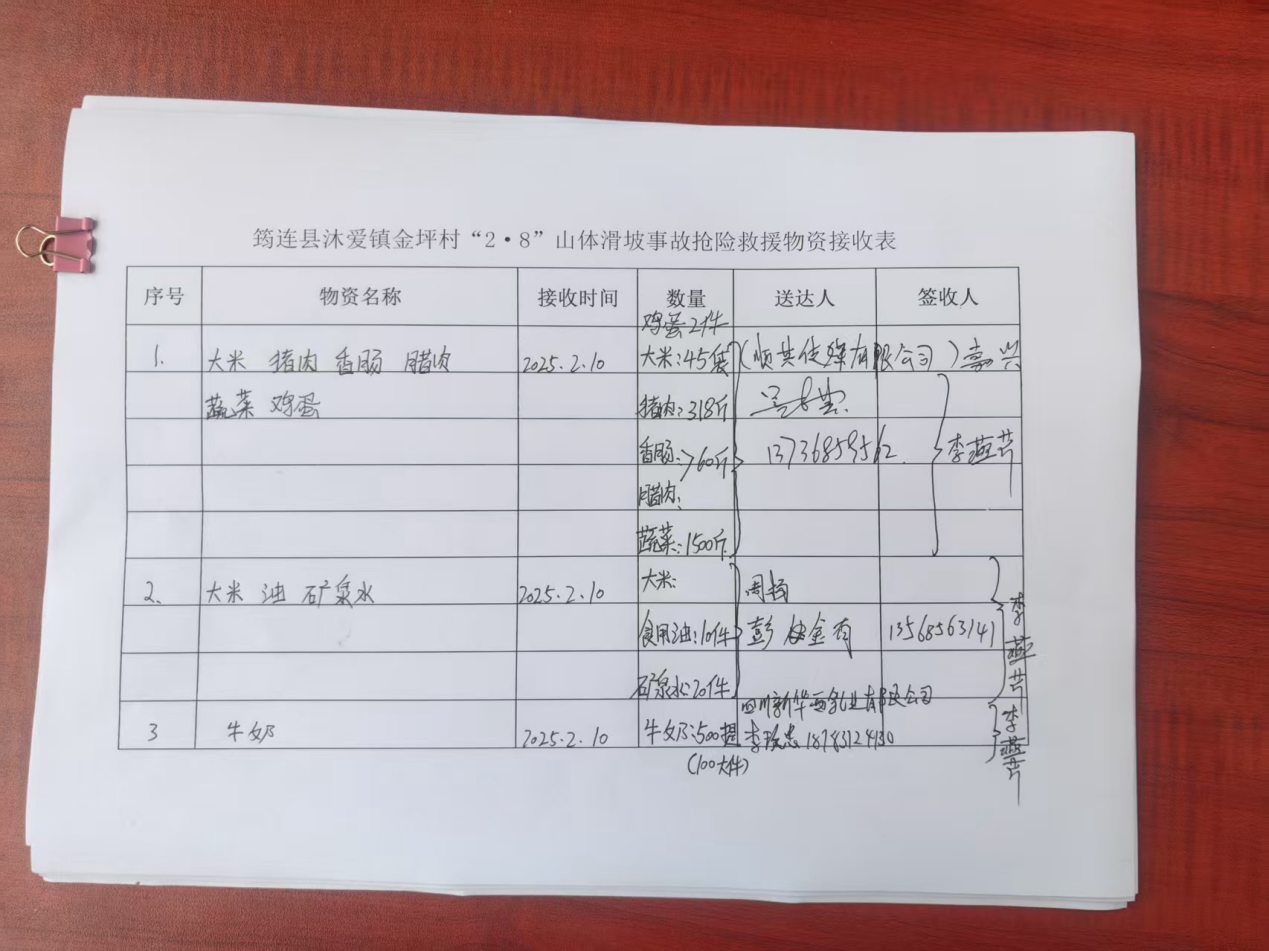 筠连县沐爱镇金坪村“2·8”山体滑坡事故抢险救援物资接收表
序号 物资名称 接收时间 数量 送达人 签收人
鸡蛋2件
1. 大米 猪肉 香肠 腊肉 2025.2.10 大米:45袋 限公司)
蔬菜 鸡蛋 猪肉:318斤
香肠:>60斤 13736859562 李燕芹
腊肉:
蔬菜:1500斤
2. 大米 油 矿泉水 2025.2.10 大米: 周杨 李燕芹
食用油:10件 彭 金有 13568563141
矿泉水:20件
四川新华西乳业有限公司
3 牛奶 2025.2.10 牛奶:500提 李 18783124130 李燕芹
(100大件)